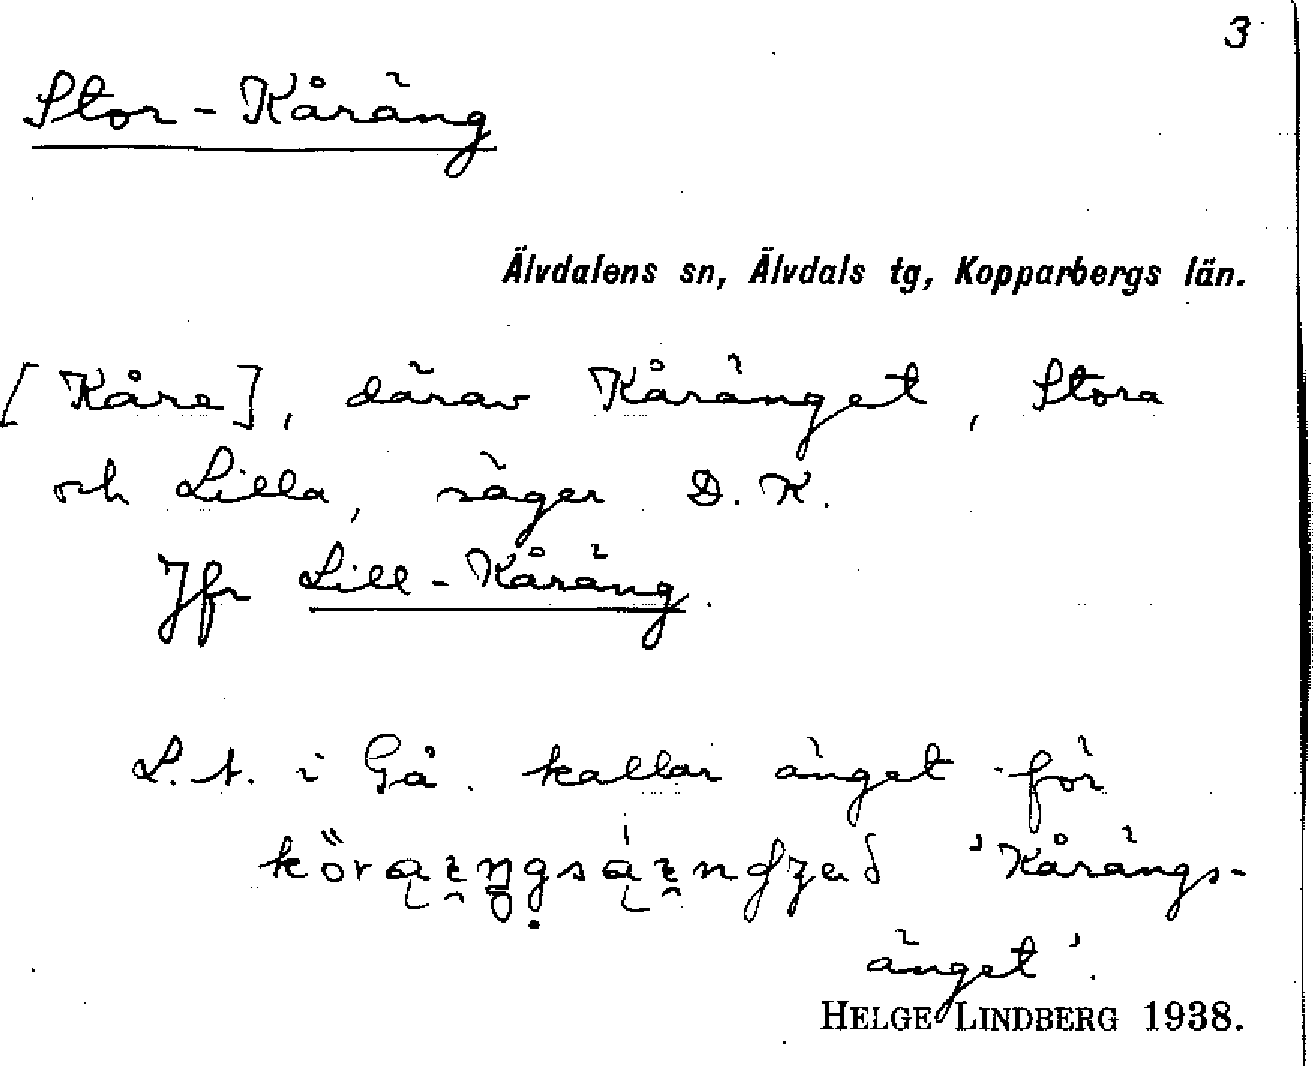 3
Stor-Kåräng
Älvdalens sn, Älvdals tg, Kopparbergs län.
[Kåre], därav Kåränget, Stora
och Lilla, säger D. K.
Jfr Lill-Kåräng.
L. A. i Gå. kallar änget för
'Kårängs-
änget'.
HELGE LINDBERG 1938.